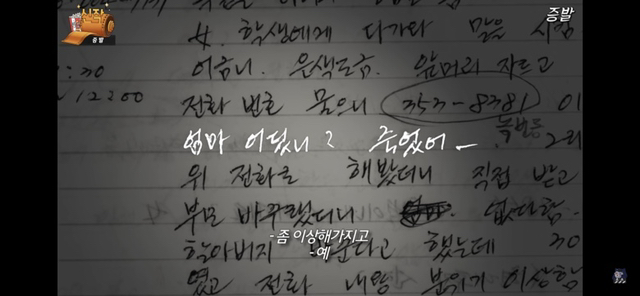 신작
증발
증발
4. 학생에게 다가와 말을 시킴
:30
어금니. 은색도금. 앞머리 자르고
12200
전화 번호 물으니 353-8381 이
녹번동
엄마 어딨니? 죽었어 - 그리
위 전화로 해봤더니 직접 받고
부모 바꾸랬더니 없다함.
- 좀 이상해가지고
- 예
할아버지 했는데 30
였고 전화 내왕 분위기 이상함